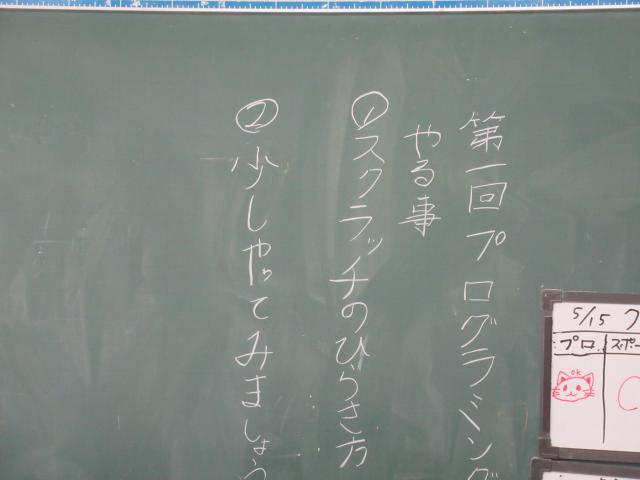 第一回プログラミング
やる事
①スクラッチのひらき方
②少しやってみましょう
5/15 ク
プロ. スポー
OK